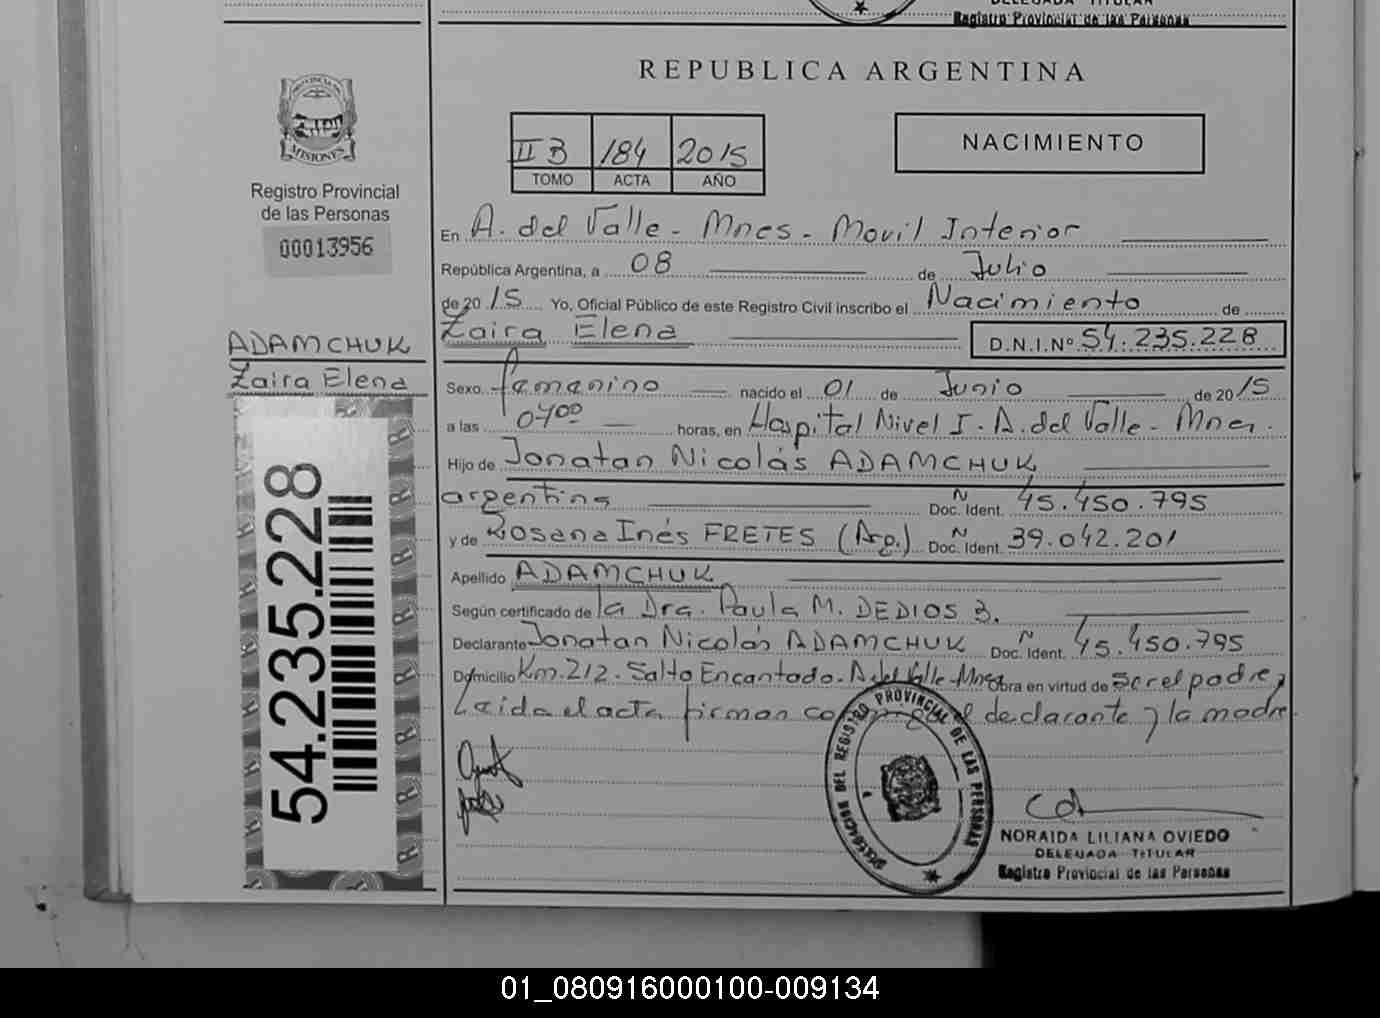 DELEGADA TITULAR
Registro Provincial de las Personas
REPUBLICA ARGENTINA
PROVINCIA DE
MISIONES
Registro Provincial
de las Personas
00013956
II B 184 2015
TOMO ACTA AÑO
NACIMIENTO
En A. del Valle - Mnes - Movil Interior
República Argentina, a 08 de Julio
de 2015 Yo, Oficial Público de este Registro Civil inscribo el Nacimiento de
Zaira Elena D.N.I.Nº 54.235.228
ADAMCHUK
Zaira Elena
54.235.228
Sexo femenino nacido el 01 de Junio de 2015
a las 07⁰⁰ horas, en Hospital Nivel I. A. del Valle - Mnes.
Hijo de Jonatan Nicolás ADAMCHUK
argentina Doc. Ident. N 45.450.795
y de Rosana Inés FRETES (Arg.) Doc. Ident. N 39.042.201
Apellido ADAMCHUK
Según certificado de la Dra. Paula M. DEDIOS B.
Declarante Jonatan Nicolás ADAMCHUK Doc. Ident. N 45.450.795
Domicilio Km. 212 - Salto Encantado - A del Valle - Mnes Obra en virtud de ser el padre,
Leida el acta firman conmigo el declarante y la madre.
DELEGACION DEL REGISTRO PROVINCIAL DE LAS PERSONAS
NORAIDA LILIANA OVIEDO
DELEGADA TITULAR
Registro Provincial de las Personas
01_080916000100-009134